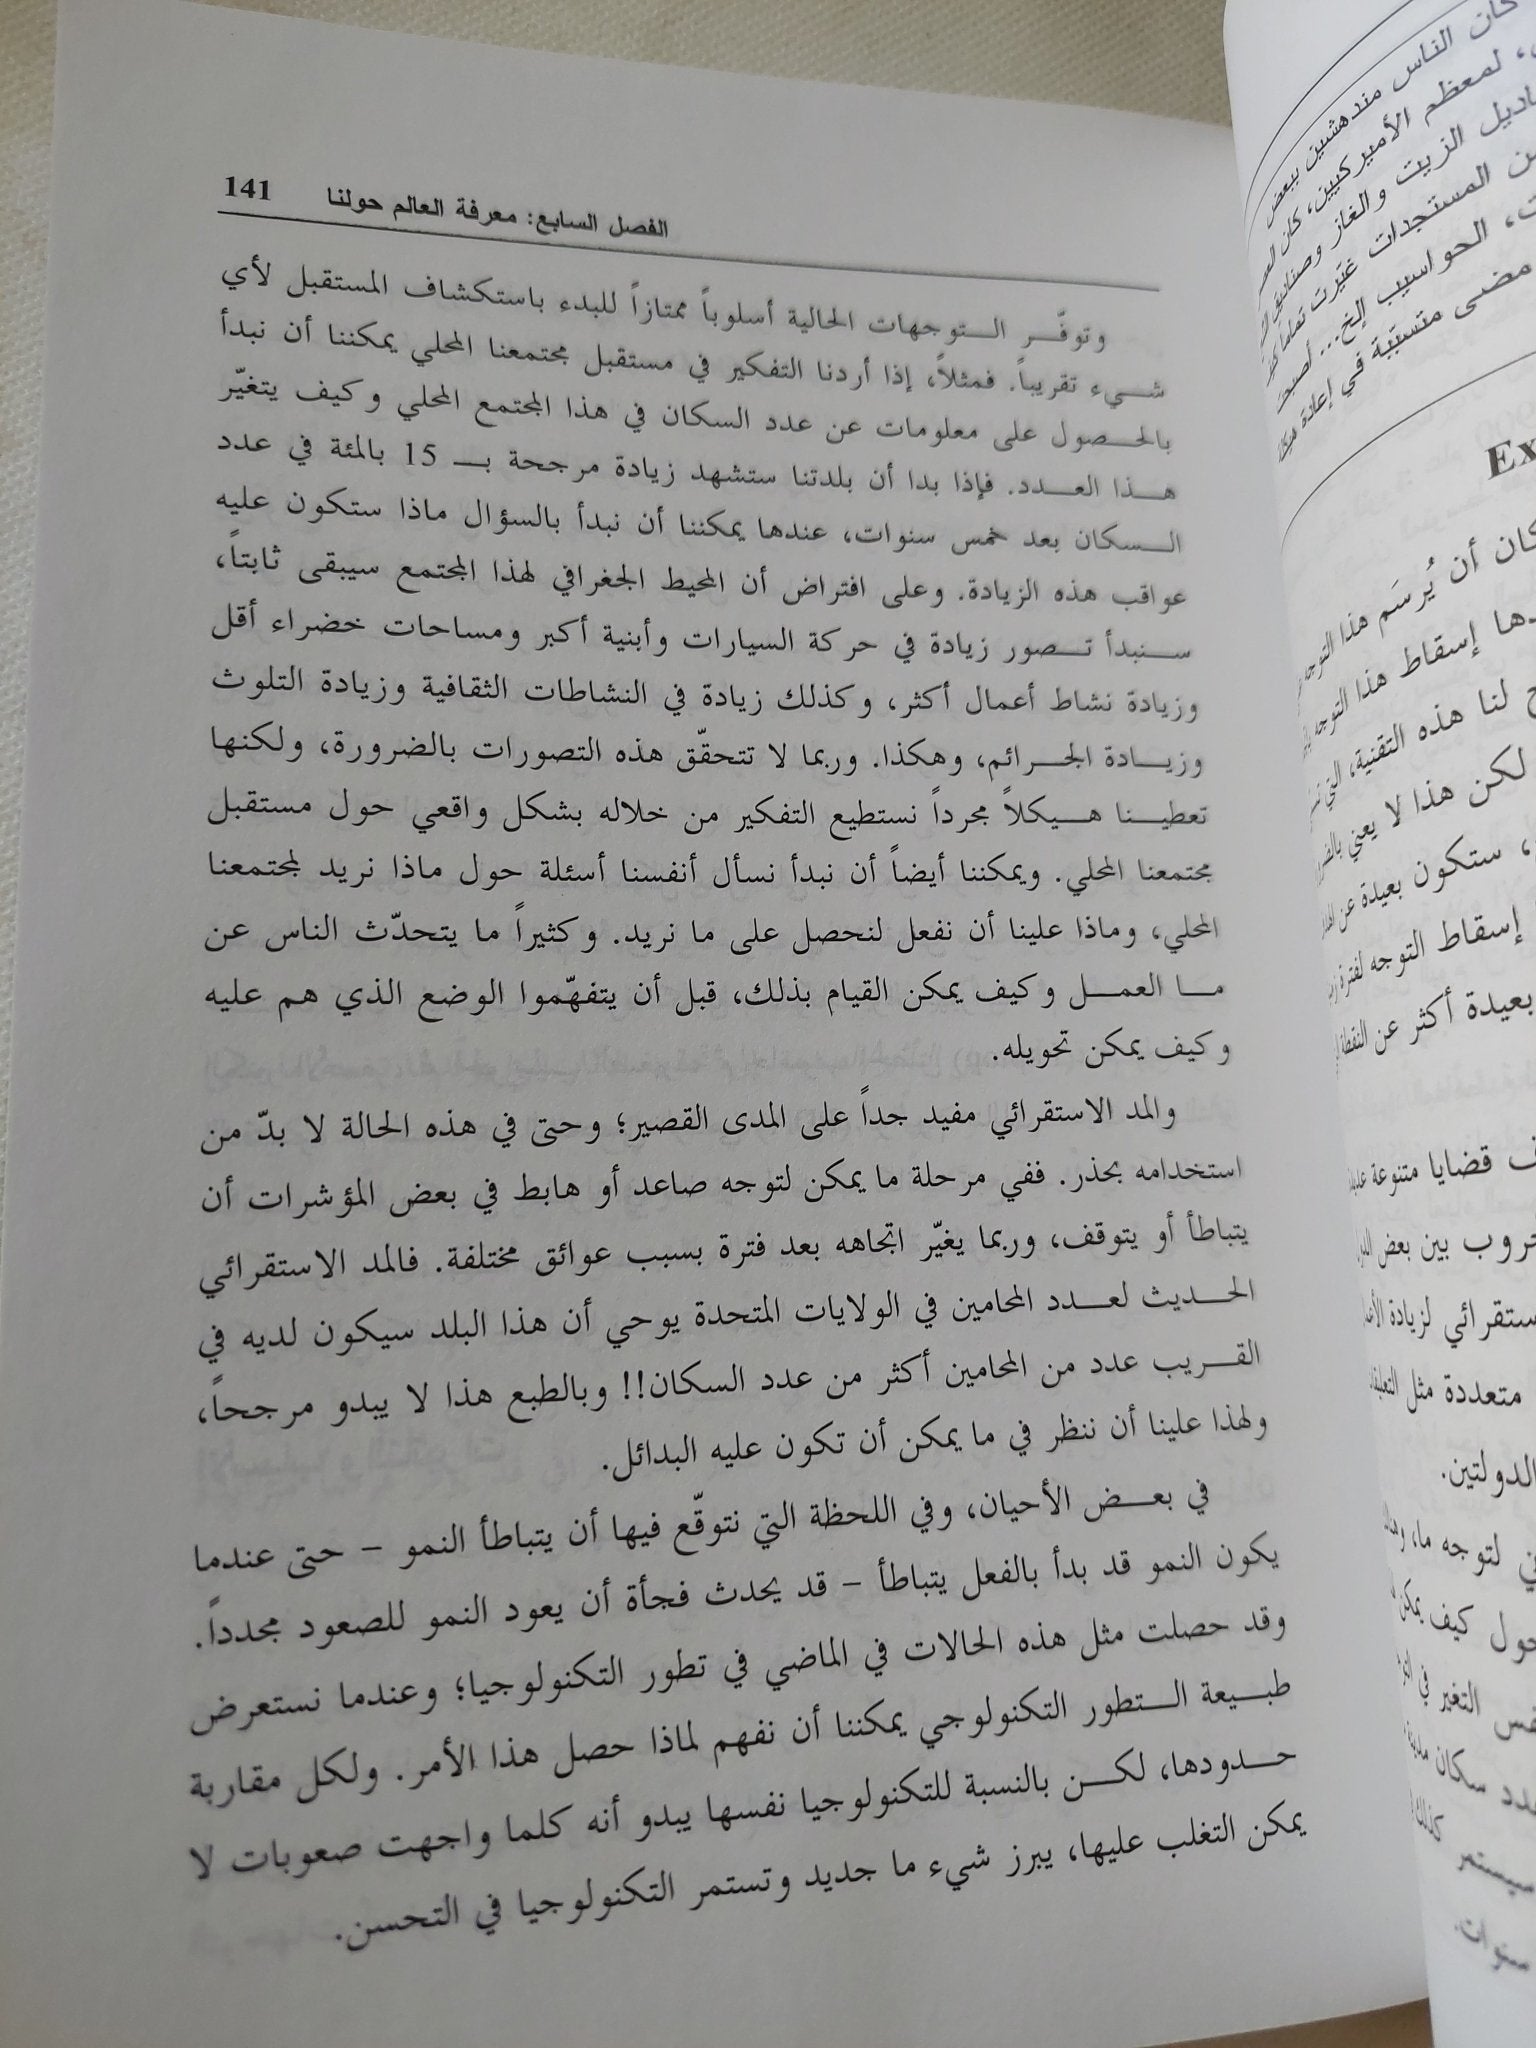 الفصل السابع: معرفة العالم حولنا 141
وتوفّر التوجهات الحالية أسلوباً ممتازاً للبدء باستكشاف المستقبل لأي
شيء تقريباً. فمثلاً، إذا أردنا التفكير في مستقبل مجتمعنا المحلي يمكننا أن نبدأ
بالحصول على معلومات عن عدد السكان في هذا المجتمع المحلي وكيف يتغيّر
هذا العدد. فإذا بدا أن بلدتنا ستشهد زيادة مرجحة بـ 15 بالمئة في عدد
السكان بعد خمس سنوات، عندها يمكننا أن نبدأ بالسؤال ماذا ستكون عليه
عواقب هذه الزيادة. وعلى افتراض أن المحيط الجغرافي لهذا المجتمع سيبقى ثابتاً،
سنبدأ تصور زيادة في حركة السيارات وأبنية أكبر ومساحات خضراء أقل
وزيادة نشاط أعمال أكثر، وكذلك زيادة في النشاطات الثقافية وزيادة التلوث
وزيادة الجرائم، وهكذا. وربما لا تتحقّق هذه التصورات بالضرورة، ولكنها
تعطينا هيكلاً مجرداً نستطيع التفكير من خلاله بشكل واقعي حول مستقبل
مجتمعنا المحلي. ويمكننا أيضاً أن نبدأ نسأل أنفسنا أسئلة حول ماذا نريد لمجتمعنا
المحلي، وماذا علينا أن نفعل لنحصل على ما نريد. وكثيراً ما يتحدّث الناس عن
ما العمل وكيف يمكن القيام بذلك، قبل أن يتفهّموا الوضع الذي هم عليه
وكيف يمكن تحويله.
والمد الاستقرائي مفيد جداً على المدى القصير؛ وحتى في هذه الحالة لا بدّ من
استخدامه بحذر. ففي مرحلة ما يمكن لتوجه صاعد أو هابط في بعض المؤشرات أن
يتباطأ أو يتوقف، وربما يغيّر اتجاهه بعد فترة بسبب عوائق مختلفة. فالمد الاستقرائي
الحديث لعدد المحامين في الولايات المتحدة يوحي أن هذا البلد سيكون لديه في
القريب عدد من المحامين أكثر من عدد السكان!! وبالطبع هذا لا يبدو مرجحاً،
ولهذا علينا أن ننظر في ما يمكن أن تكون عليه البدائل.
في بعض الأحيان، وفي اللحظة التي نتوقّع فيها أن يتباطأ النمو – حتى عندما
يكون النمو قد بدأ بالفعل يتباطأ – قد يحدث فجأة أن يعود النمو للصعود مجدداً.
وقد حصلت مثل هذه الحالات في الماضي في تطور التكنولوجيا؛ وعندما نستعرض
طبيعة التطور التكنولوجي يمكننا أن نفهم لماذا حصل هذا الأمر. ولكل مقاربة
حدودها، لكن بالنسبة للتكنولوجيا نفسها يبدو أنه كلما واجهت صعوبات لا
يمكن التغلب عليها، يبرز شيء ما جديد وتستمر التكنولوجيا في التحسن.
كان الناس مندهشين ببعض
لمعظم الأميركيين، كان
الزيت والغاز وصناديق
المستجدات غيّرت تماماً
الحواسيب إلخ... أصبحت
مضى متسبّبة في إعادة
Ex
كان أن يُرسَم هذا التوجه
إسقاط هذا التوجه
لنا هذه التقنية، التي
لكن هذا لا يعني
ستكون بعيدة عن
إسقاط التوجه لفترة
بعيدة أكثر عن النقطة
قضايا متنوعة
بين بعض
لزيادة
متعددة مثل
الدولتين.
لتوجه ما،
كيف يمكن
التغير في
سكان
سيستمر كذلك
سنوات.